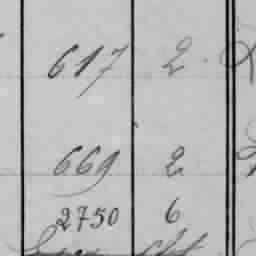 617 2
669 2
2750 6